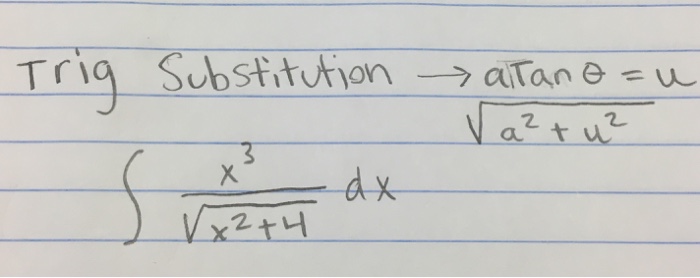 Trig Substitution → a Tan θ = u
√a² + u²
∫ x³/√x²+4 dx